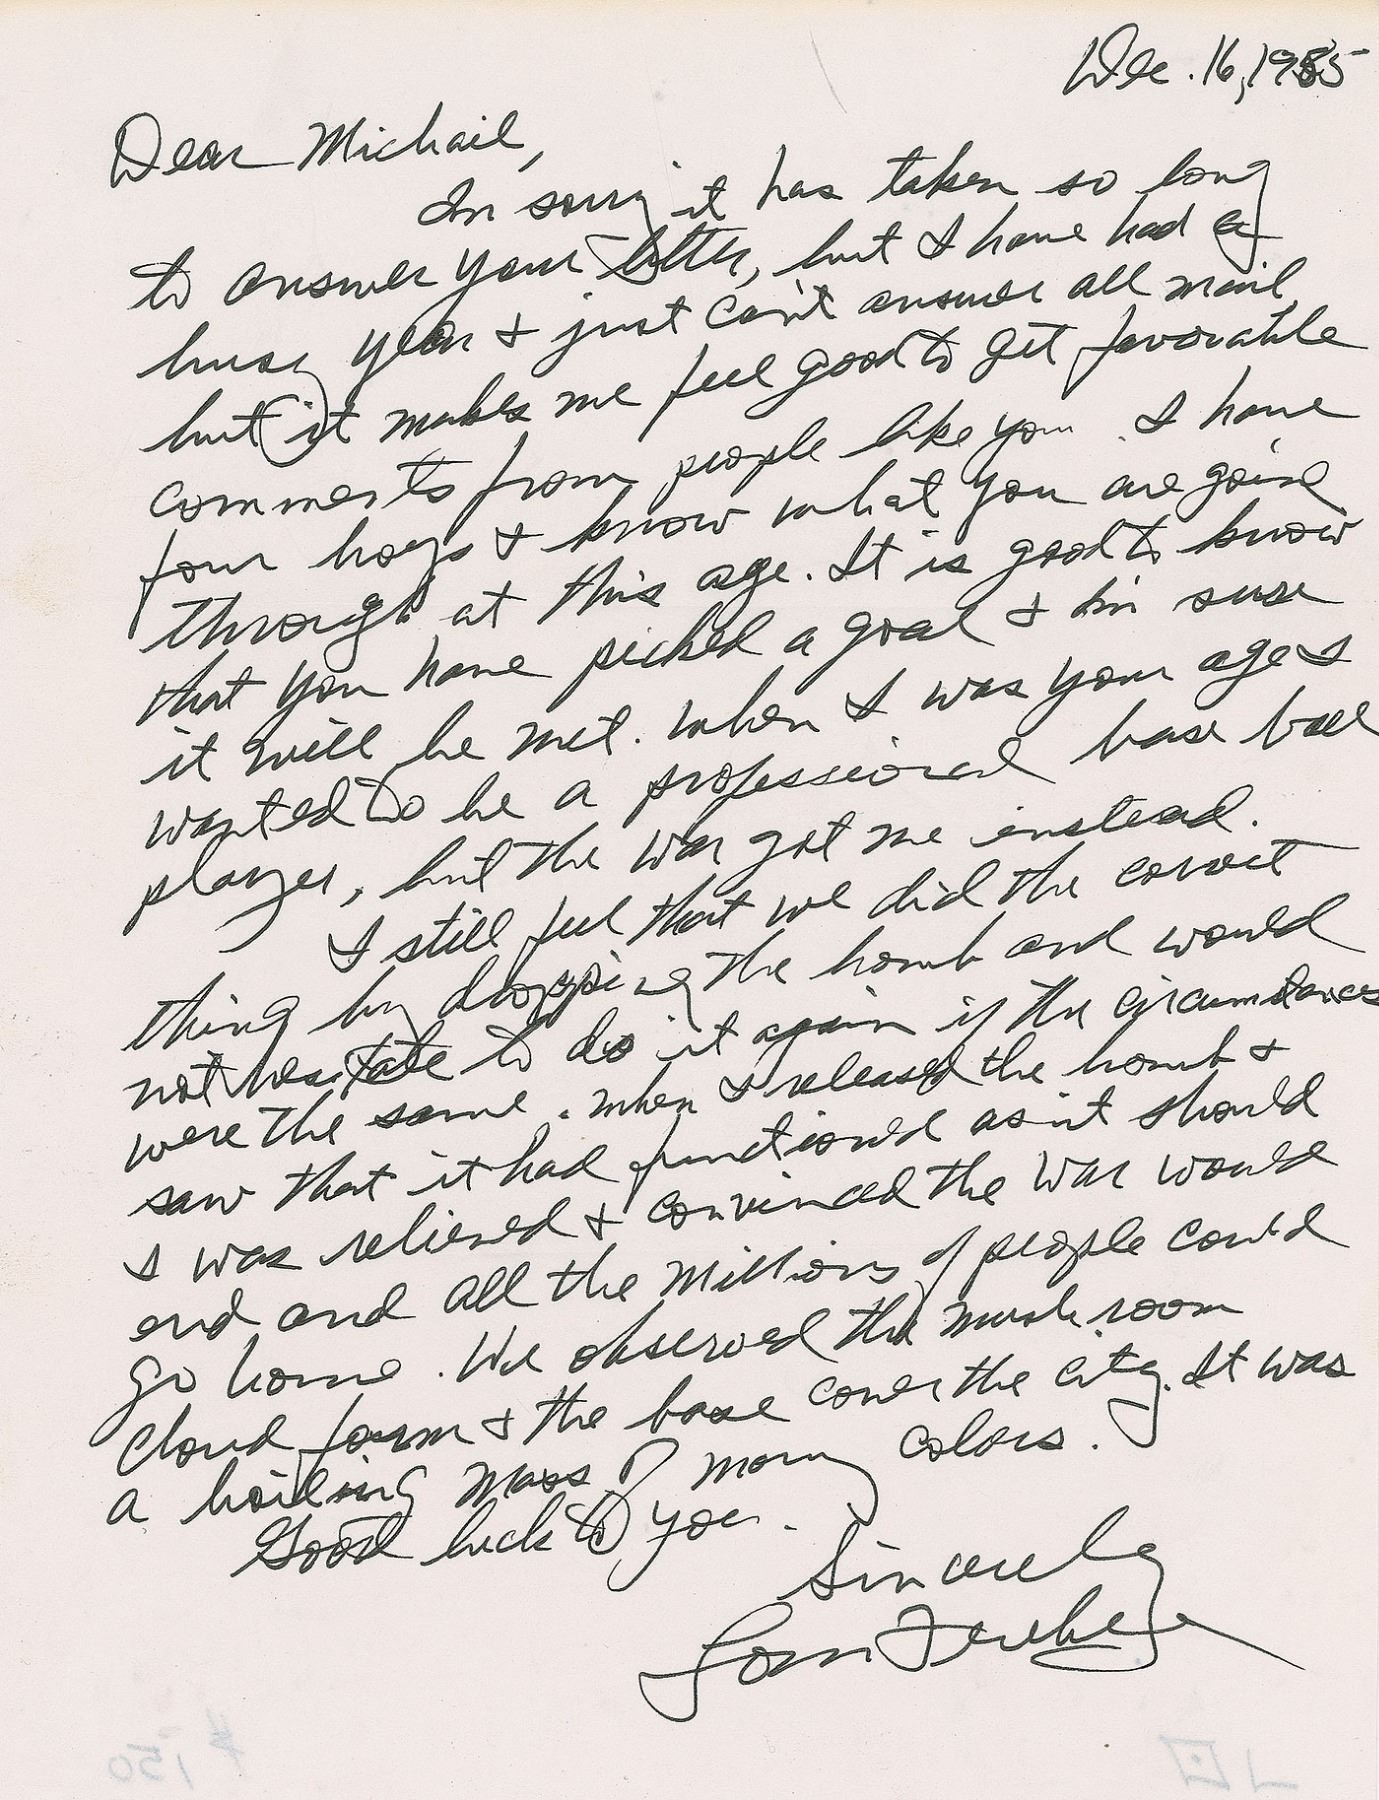 Dec. 16, 1985
Dear Michail,
Im sorry it has taken so long
to answer your letter, but I have had a
busy year & just can't answer all mail,
but it makes me feel good to get favorable
comments from people like you. I have
four boys & know what you are going
through at this age. It is good to know
that you have picked a goal & Im sure
it will be met. When I was your age I
wanted to be a professional base ball
player, but the war got me instead.
I still feel that we did the correct
thing by dropping the bomb and would
not hesitate to do it again if the circumstances
were the same. When I released the bomb &
saw that it had functioned as it should
I was relieved & convinced the war would
end and all the millions of people could
go home. We observed the mushroom
cloud form & the base cover the city. It was
a boiling mass of many colors.
Good luck to you.
Sincerely
Tom Ferebee